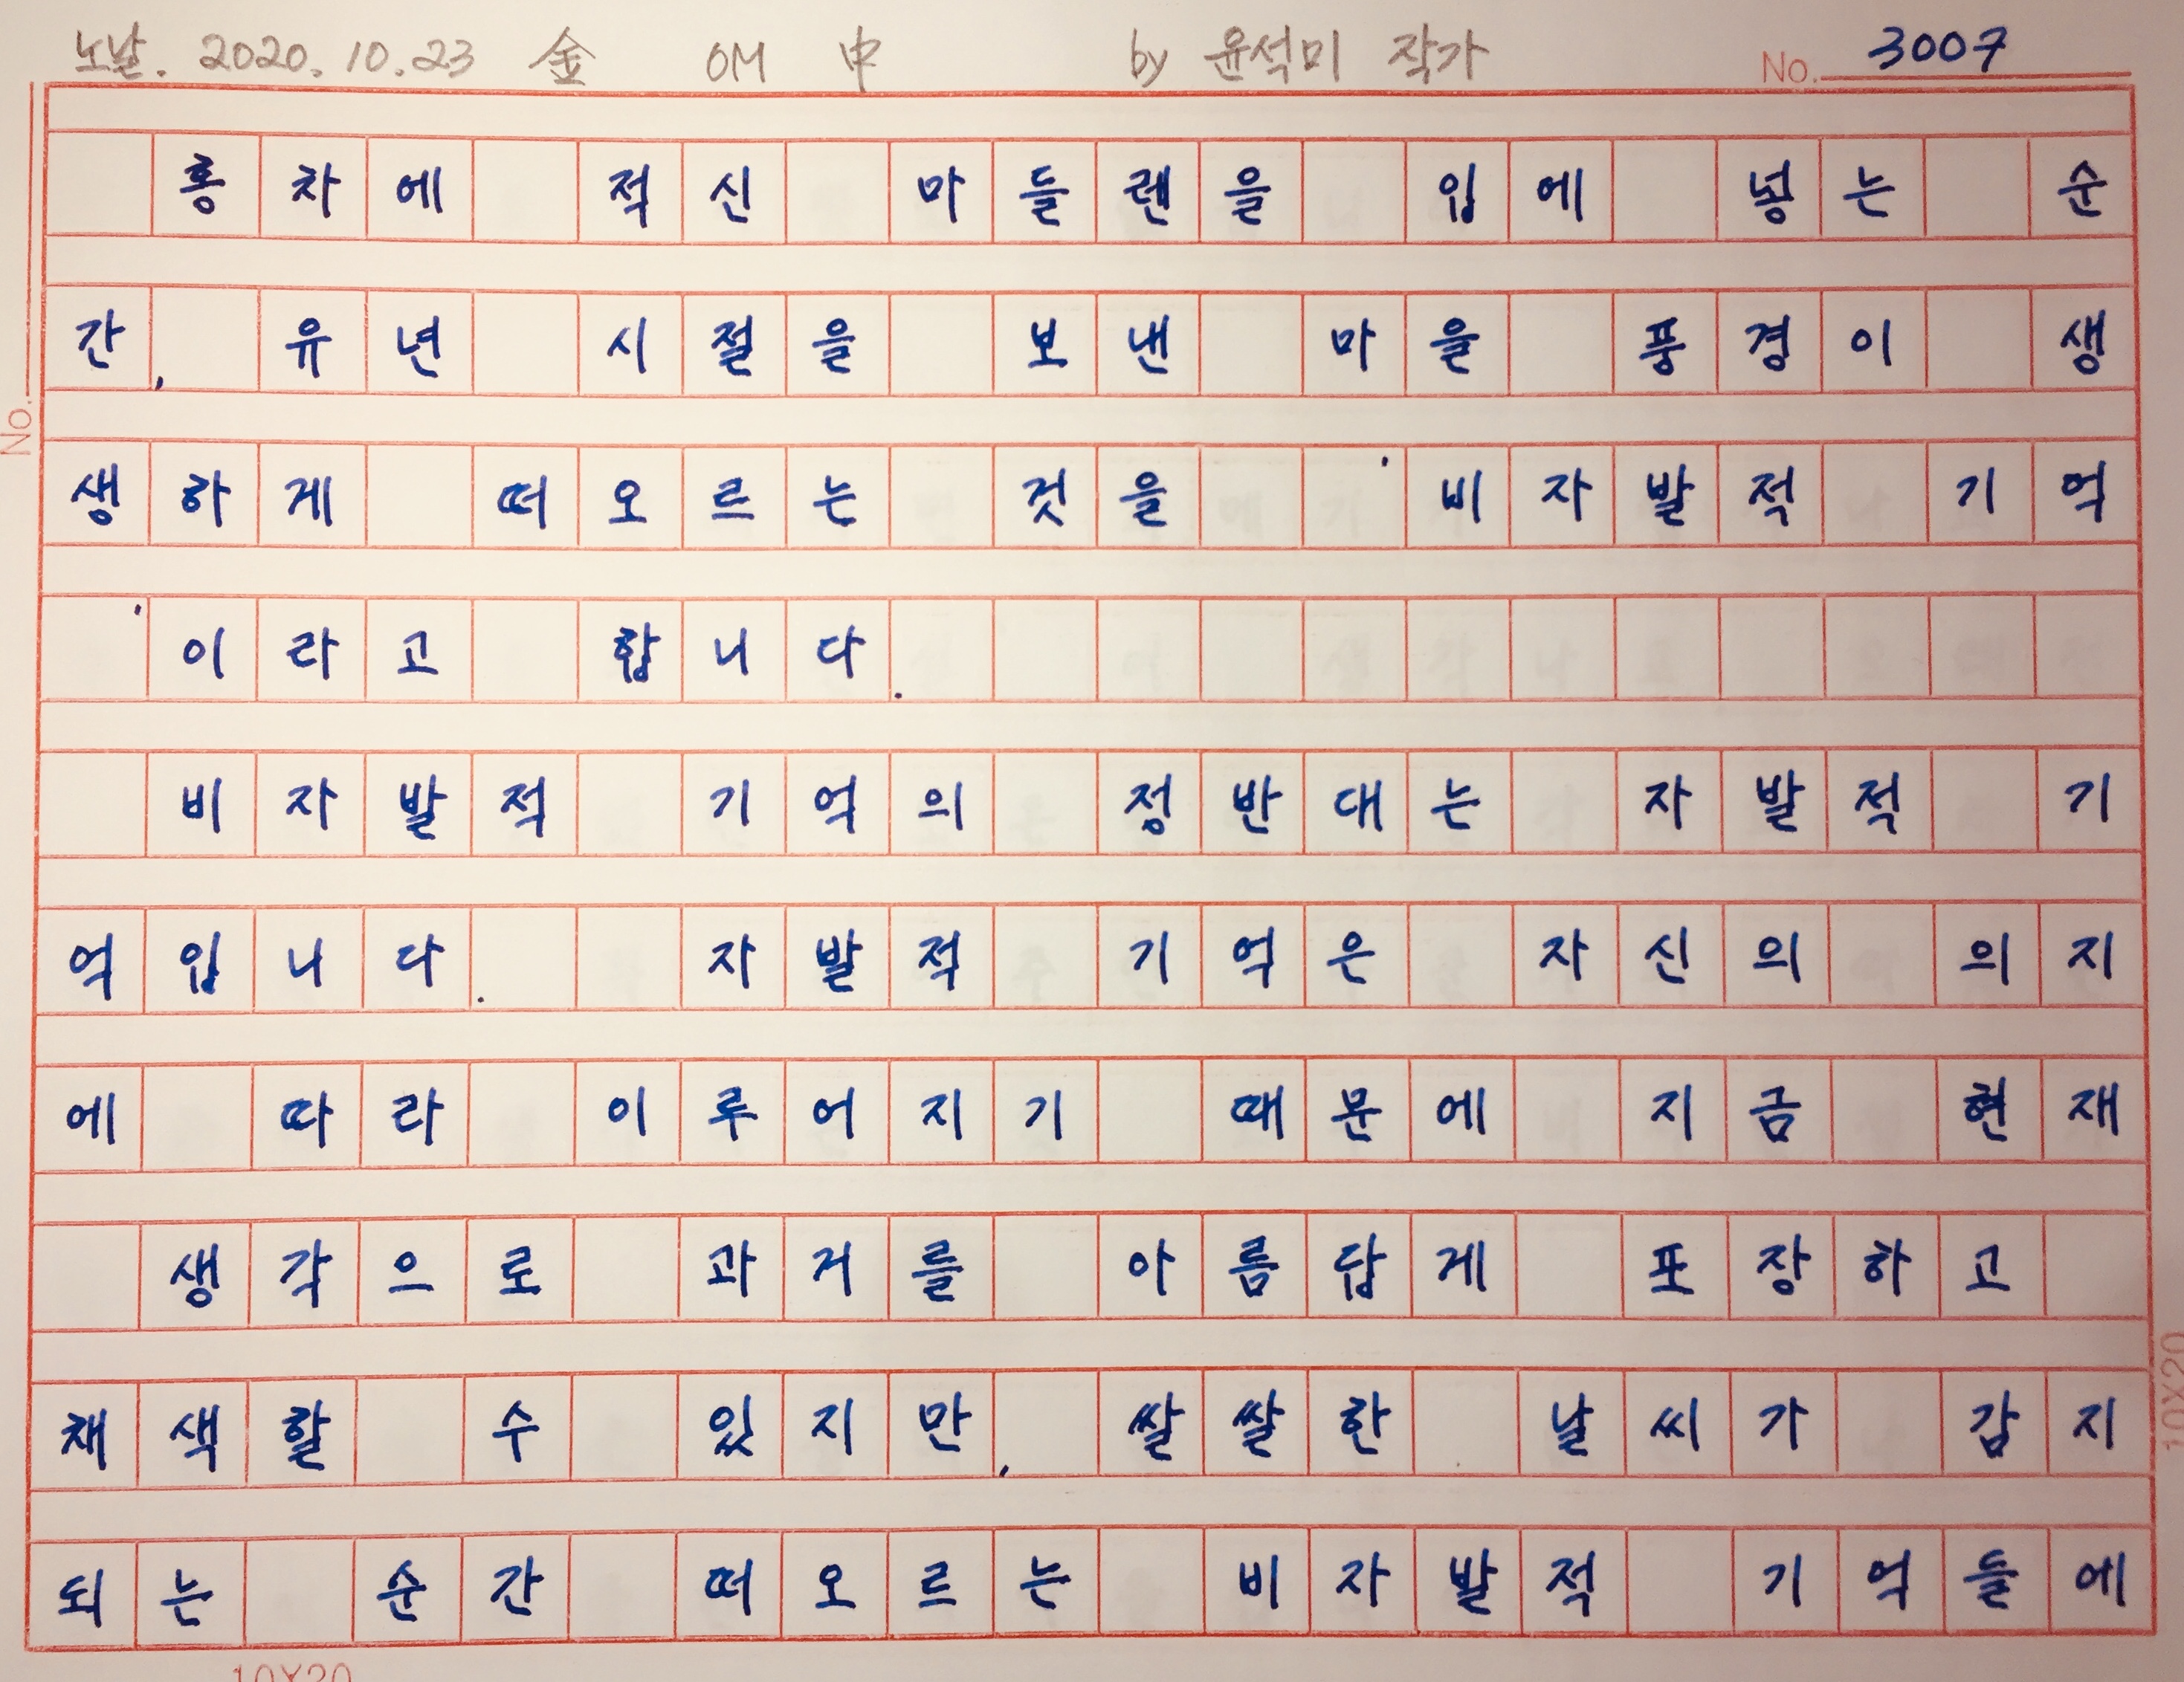 노날. 2020.10.23 金 OM 中 by 윤석미 작가 No. 3007
홍차에 적신 마들렌을 입에 넣는 순
간, 유년 시절을 보낸 마을 풍경이 생
생하게 떠오르는 것을 '비자발적 기억
'이라고 합니다.
비자발적 기억의 정반대는 자발적 기
억입니다. 자발적 기억은 자신의 의지
에 따라 이루어지기 때문에 지금 현재
생각으로 과거를 아름답게 포장하고
채색할 수 있지만, 쌀쌀한 날씨가 감지
되는 순간 떠오르는 비자발적 기억들에
No.
10X20
10X20